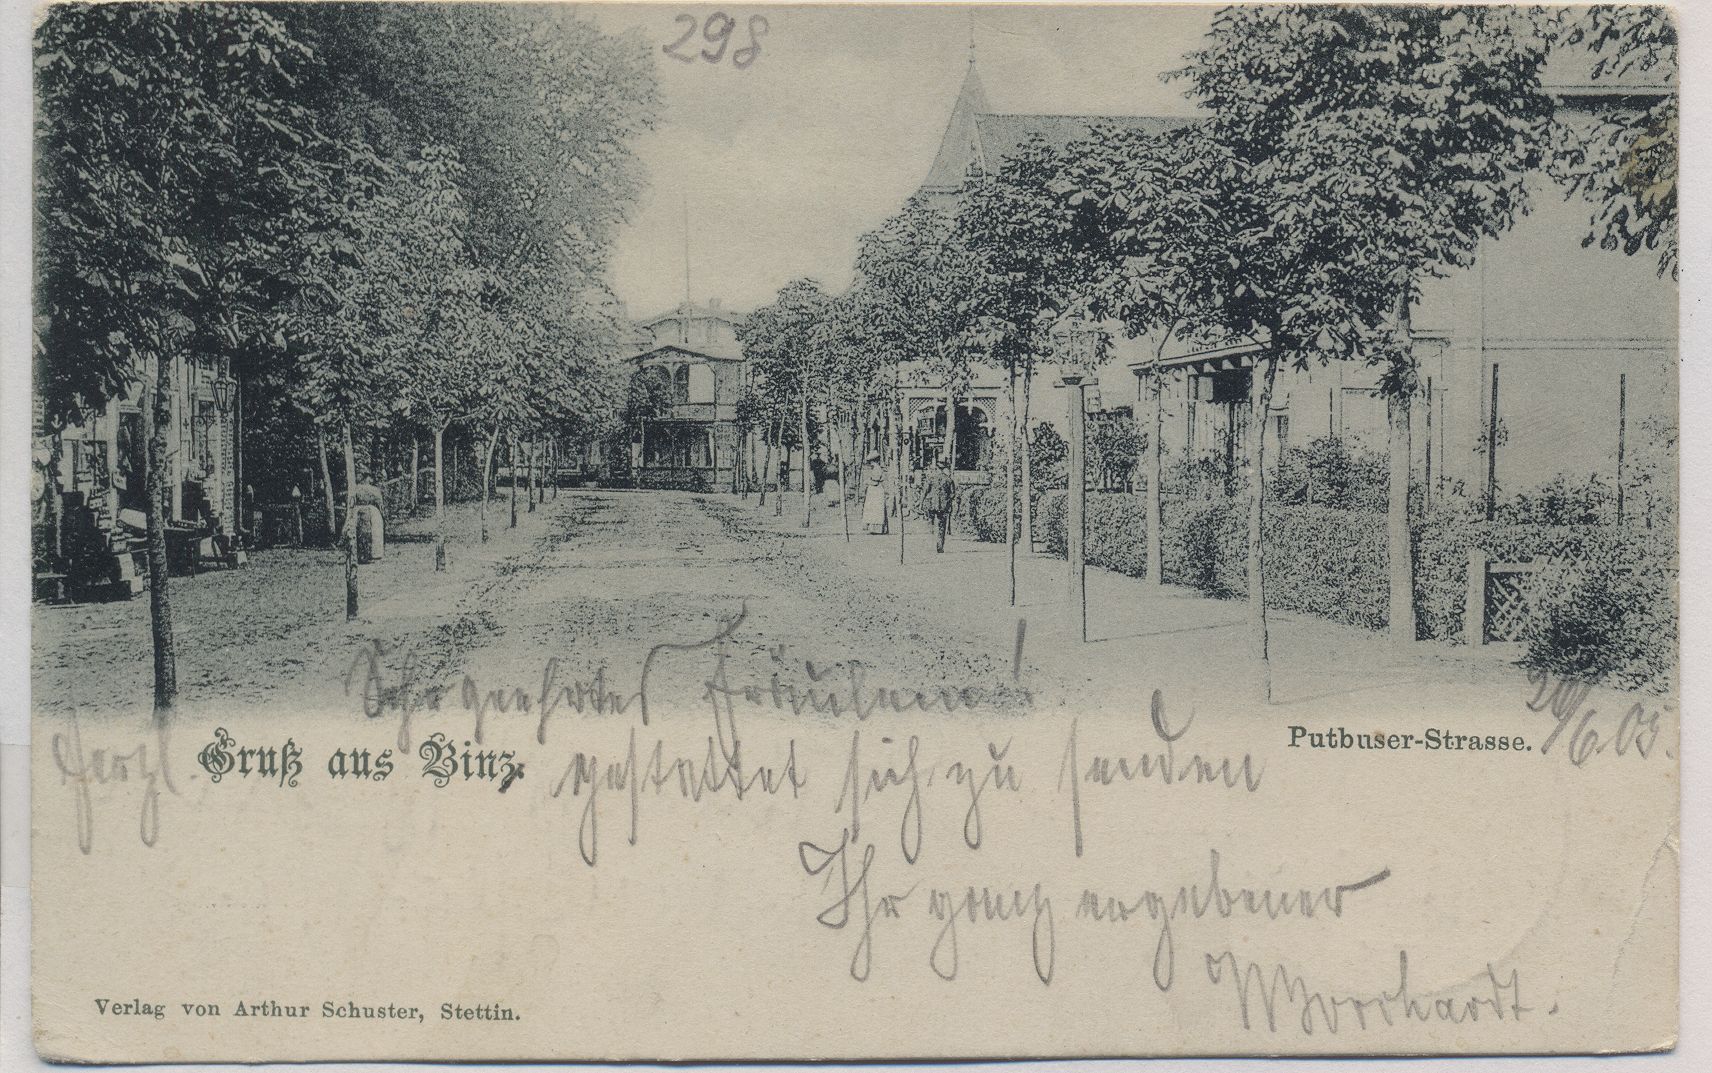 298
Sehr geehrtes Fräulein!
20/6.05.
Herzl. Gruß aus Binz.
Putbuser-Strasse.
gestattet sich zu senden
Ihr ganz ergebener
Verlag von Arthur Schuster, Stettin.